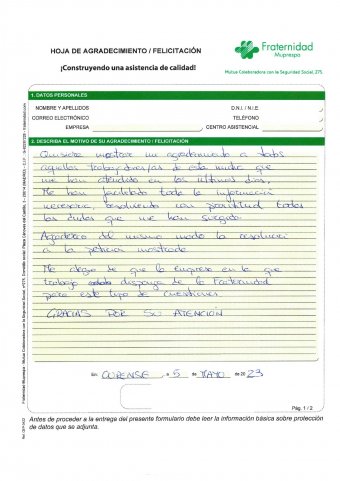 HOJA DE AGRADECIMIENTO / FELICITACIÓN
¡Construyendo una asistencia de calidad!
Fraternidad
Muprespa
Mutua Colaboradora con la Seguridad Social, 275
1. DATOS PERSONALES
NOMBRE Y APELLIDOS
D.N.I. / N.I.E.
CORREO ELECTRÓNICO
TELÉFONO
EMPRESA
CENTRO ASISTENCIAL
2. DESCRIBA EL MOTIVO DE SU AGRADECIMIENTO / FELICITACIÓN
Quisiera mostrar mi agradecimiento a todos
aquellos trabajadores/as de esta mutua que
me han atendido en los últimos días,
Me han facilitado toda la información
necesaria, resolviendo con prontitud todas
las dudas que me han surgido
Agradezco del mismo modo la resolución
a la petición mostrada
Me alegro de que la empresa en la que
trabajo disponga de la Fraternidad
para este tipo de cuestiones
GRACIAS POR SU ATENCIÓN
En OURENSE, a 5 de MAYO de 2023
Pág. 1 / 2
Antes de proceder a la entrega del presente formulario debe leer la información básica sobre protección
de datos que se adjunta.